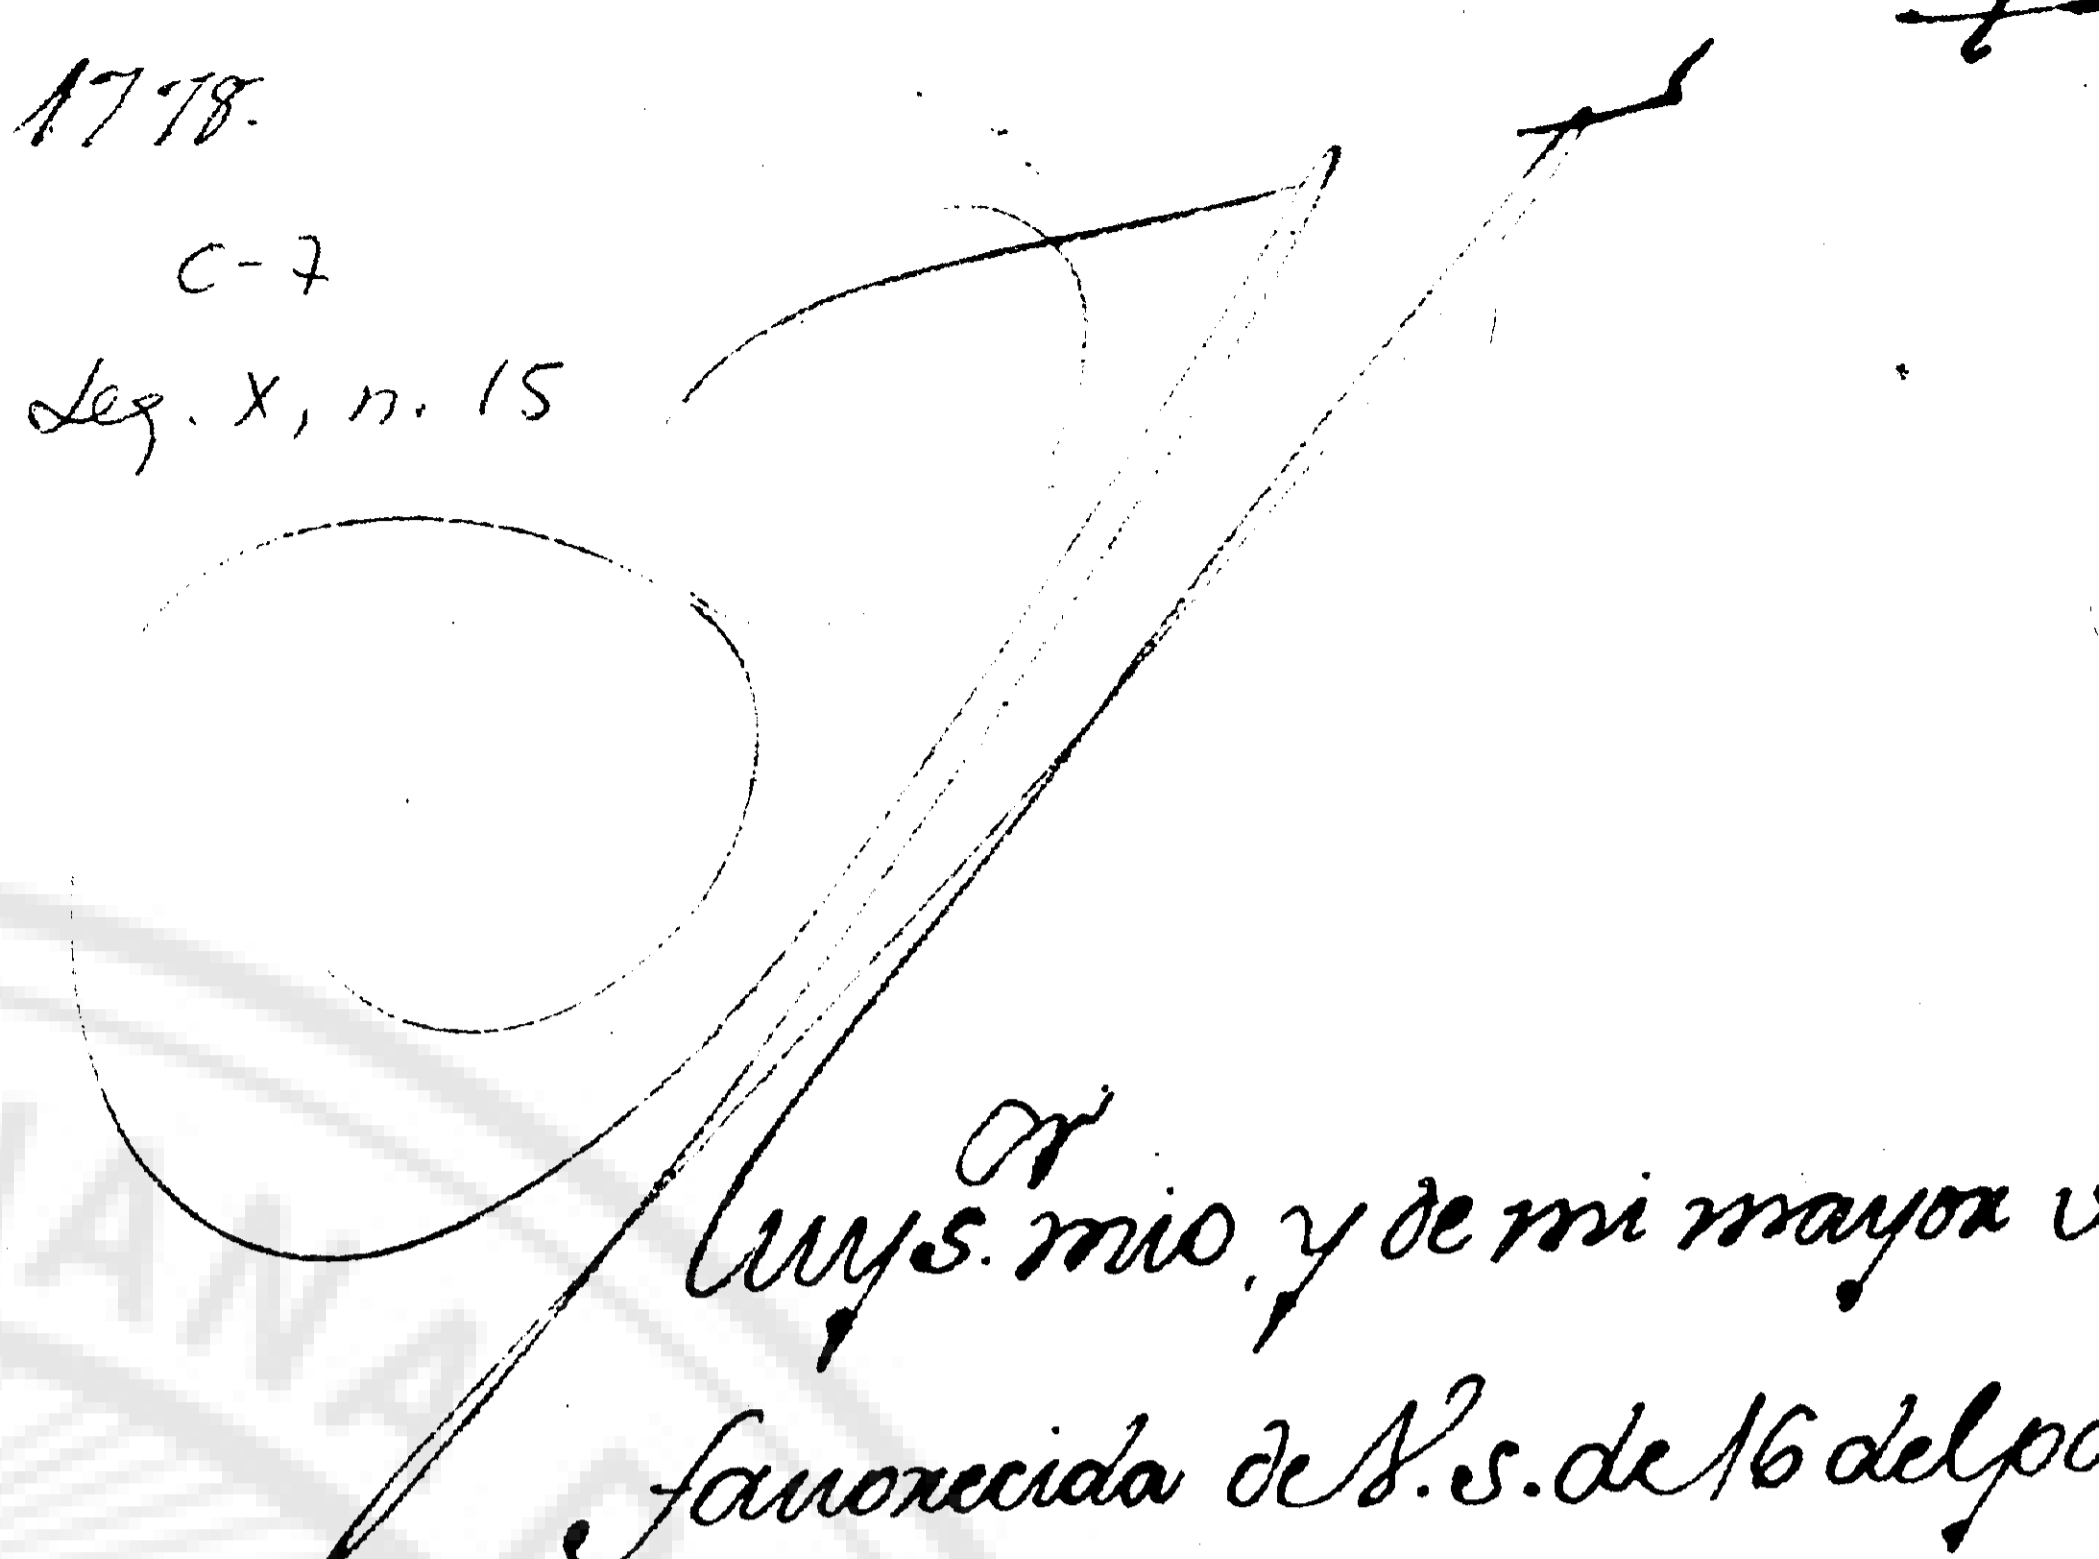 1778.
C-7
Leg. X, n. 15
Muy s.or mio, y de mi mayor
favorecida de V. s. de 16 del